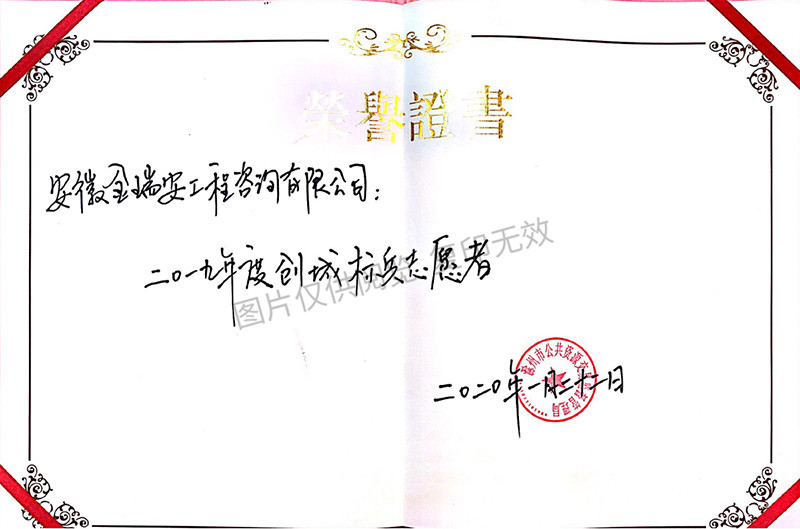 榮譽證書
安徽金瑞安工程咨询有限公司：
二〇一九年度创城标兵志愿者
图片仅供阅览 复印无效
二〇二〇年一月二十二日
州市公共资源交易监督管理局